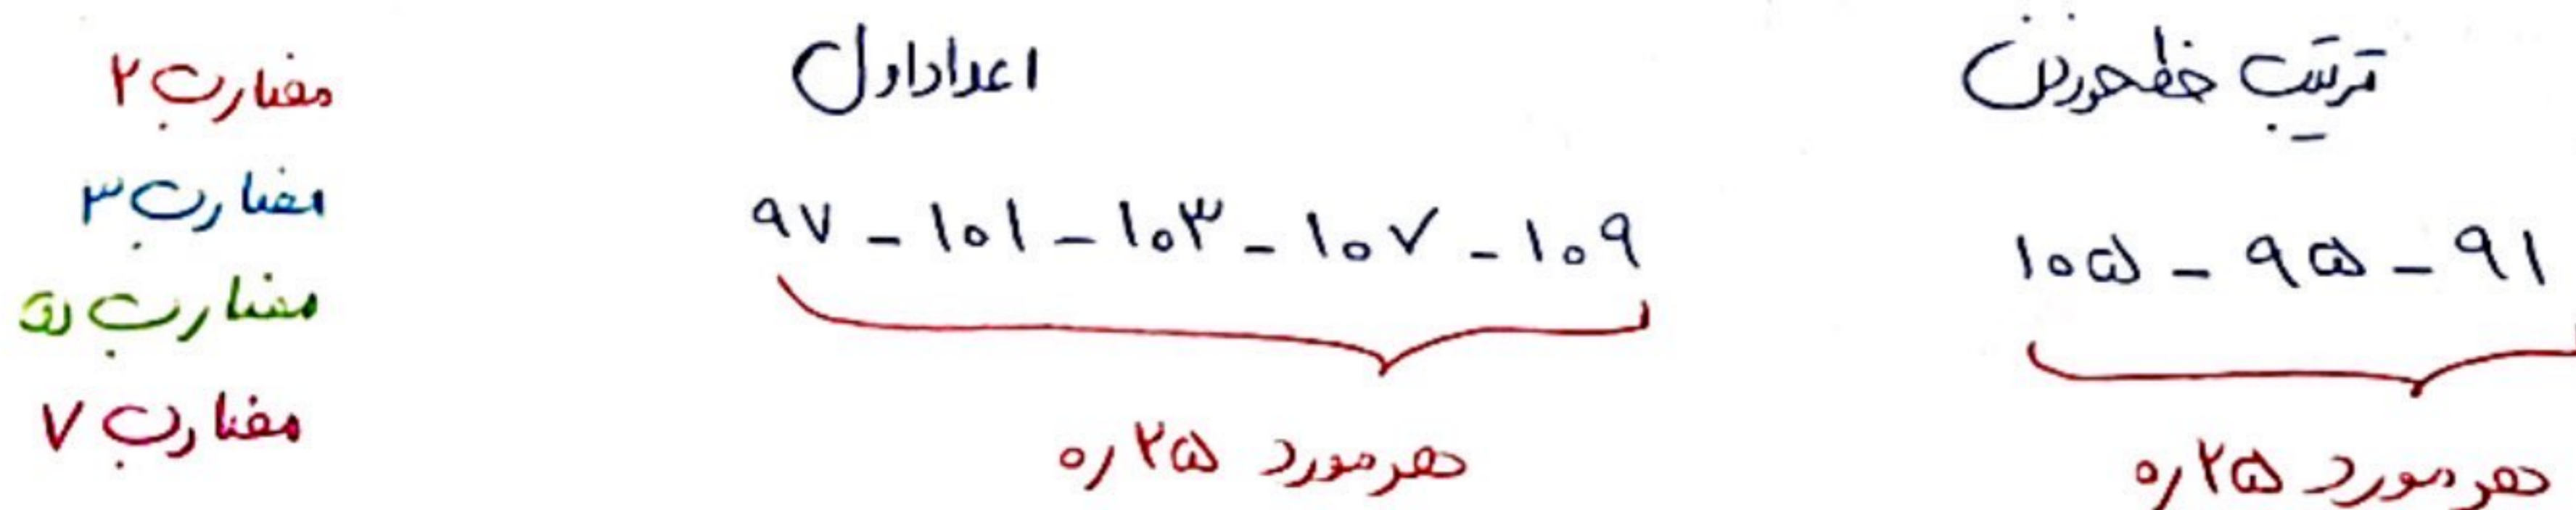 ترتیب خط خوردن
۱۰۵ - ۹۵ - ۹۱
هر مورد ۰/۲۵
اعداد اول
۹۷ - ۱۰۱ - ۱۰۳ - ۱۰۷ - ۱۰۹
هر مورد ۰/۲۵
مضارب ۲
مضارب ۳
مضارب ۵
مضارب ۷